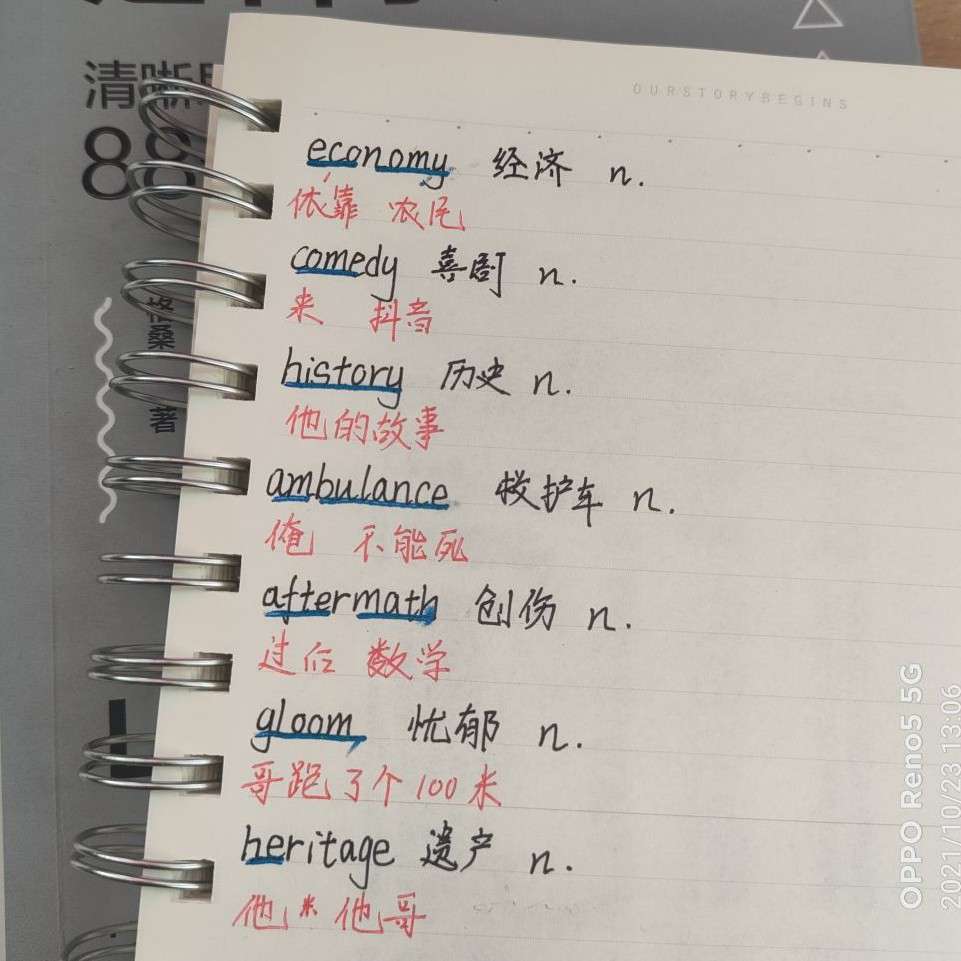 清晰
88
格桑 著
OURSTORYBEGINS
economy 经济 n.
依靠 农民
comedy 喜剧 n.
来 抖音
history 历史 n.
他的故事
ambulance 救护车 n.
俺 不能死
aftermath 创伤 n.
过后 数学
gloom 忧郁 n.
哥跑了个100米
heritage 遗产 n.
他来他哥
OPPO Reno5 5G
2021/10/23 13:06